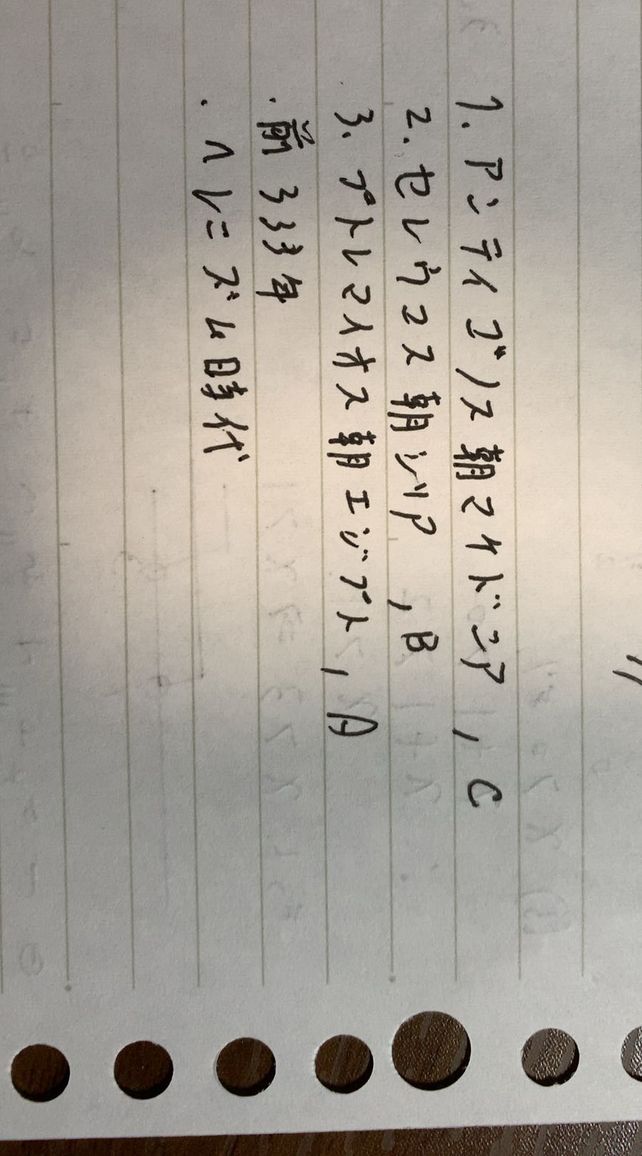 1. アンティゴノス朝マケドニア, C
2. セレウコス朝シリア, B
3. プトレマイオス朝エジプト, A
・前333年
・ヘレニズム時代